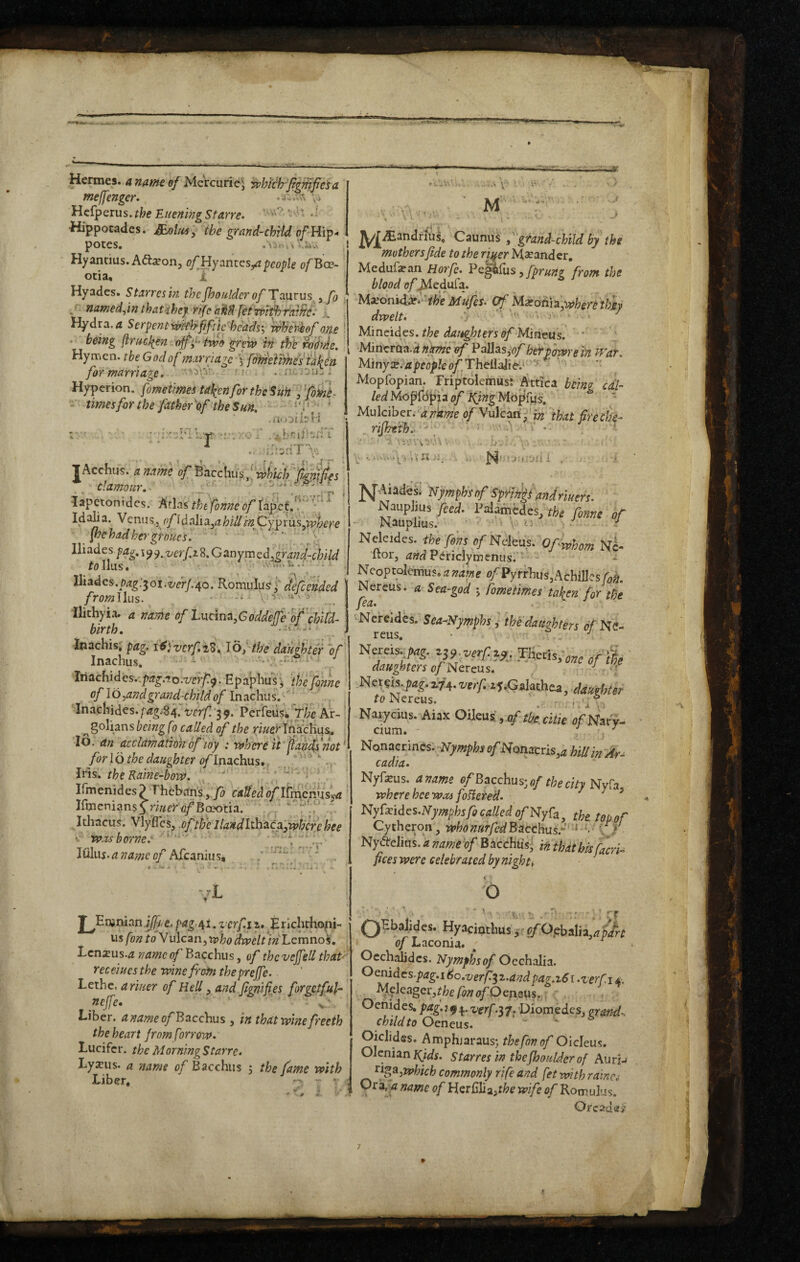 Hermes. a name of Mercurie, which signifies a
messenger.
Hesperus. the Euening Starre.
Hippotades. Æolus, the grand-child of Hip-
potes.
Hyantius. Actæon, of Hyantes, a people of Bœ-
otia.
Hyades. Starres in the shoulder of Taurus, so
named, in that they rise and set with raine.
Hydra. a Serpent with fiftie heads; whereof one
being strucken off, two grew in the roome.
Hymen. the God of marriage; sometimes taken
for marriage.
Hyperion. sometimes taken for the Sun, some-
times for the father of the Sun.
I
IAcchus. a name of Bacchus, which signifies
clamour.
Iapetonides. Atlas the sonne of Iapet.
Idalia. Venus, of Idalia, a hill in Cyprus, where
she had her groues.
Iliades pag. 199. vers. 18. Ganymed, grand-child
to Ilus.
Iliades. pag 301. vers. 40. Romulus, descended
from Ilus.
Ilithyia. a name of Lucina, Goddesse of child-
birth.
Inachis; pag. 161 vers. 28. Iö, the daughter of
Inachus.
Inachides. pag. 20. vers. 9. Epaphus, the sonne
of Iö, and grand-child of Inachus.
Inachides. pag. 84. vers. 39. Perseus. The Ar-
golians being so called of the riuer Inachus.
Iö. an acclamation of ioy: where it stands not
for Iö the daughter of Inachus.
Iris. the Raine-bow.
Ismenides Thebans, so called of Ismenus, a
Ismenians riuer of Bœotia.
Ithacus. Vlysses, of the Iland Ithaca, where hee
was borne.
Iülus. a name of Ascanius.
L
LEmnian issue. pag 41. vers. 12. Erichthoni-
us son to Vulcan, who dwelt in Lemnos.
Lenæus. a name of Bacchus, of the vessell that
receiues the wine from the presse.
Lethe. a riuer of Hell, and signifies forgetful-
nesse.
Liber. a name of Bacchus, in that wine freeth
the heart from sorrow.
Lucifer. the Morning Starre.
Lyæus. a name of Bacchus; the same with
Liber.
M
MÆandrius, Caunus, grand-child by the
mothers side to the riuer Mæander.
Medusæan Horse. Pegasus, sprung from the
blood of Medusa.
Mæonidæ. the Muses. Of Mæonia, where they
dwelt.
Mineides. the daughters of Mineus.
Minerua. a name of Pallas, of her powre in War.
Minyæ. a people of Thessalie.
Mopsopian. Triptolemus: Attica being cal-
led Mopsopia of King Mopsus.
Mulciber. a name of Vulcan, in that fire che-
risheth.
N
NAiades. Nymphs of Springs and riuers.
Nauplius seed. Palamedes, the sonne of
Nauplius.
Neleides. the sons of Neleus. Of whom Ne-
stor, and Periclymenus.
Neoptolemus. a name of Pyrrhus, Achilles son.
Nereus. a Sea-god; sometimes taken for the
sea.
Nereides. Sea-Nymphs, the daughters of Ne-
reus.
Nereis. pag. 239. vers. 29. Thetis, one of the
daughters of Nereus.
Nereis. pag. 274. vers. 25. Galathea, daughter
to Nereus.
Narycius. Aiax Oileus, of the citie of Nary-
cium.
Nonacrines. Nymphs of Nonacris, a hill in Ar-
cadia.
Nysæus. a name of Bacchus; of the city Nysa,
where hee was fostered.
Nysæides. Nymphs so called of Nysa, the top of
Cytheron, who nursed Bacchus.
Nyctelius. a name of Bacchus, in that his sacri-
fices were celebrated by night.
O
OEbalides. Hyacinthus, of Oebalia, a part
of Laconia.
Oechalides. Nymphs of Oechalia.
Oenides. pag. 160. vers. 32. and pag. 261. vers. 14.
Meleager, the son of Oeneus.
Oenides. pag. 294. vers. 37. Diomedes, grand-
child to Oeneus.
Oiclides. Amphiaraus; the son of Oicleus.
Olenian Kids. Starres in the shoulder of Auri-
riga, which commonly rise and set with raine.
Ora. a name of Hersilia, the wife of Romulus.
Orcades